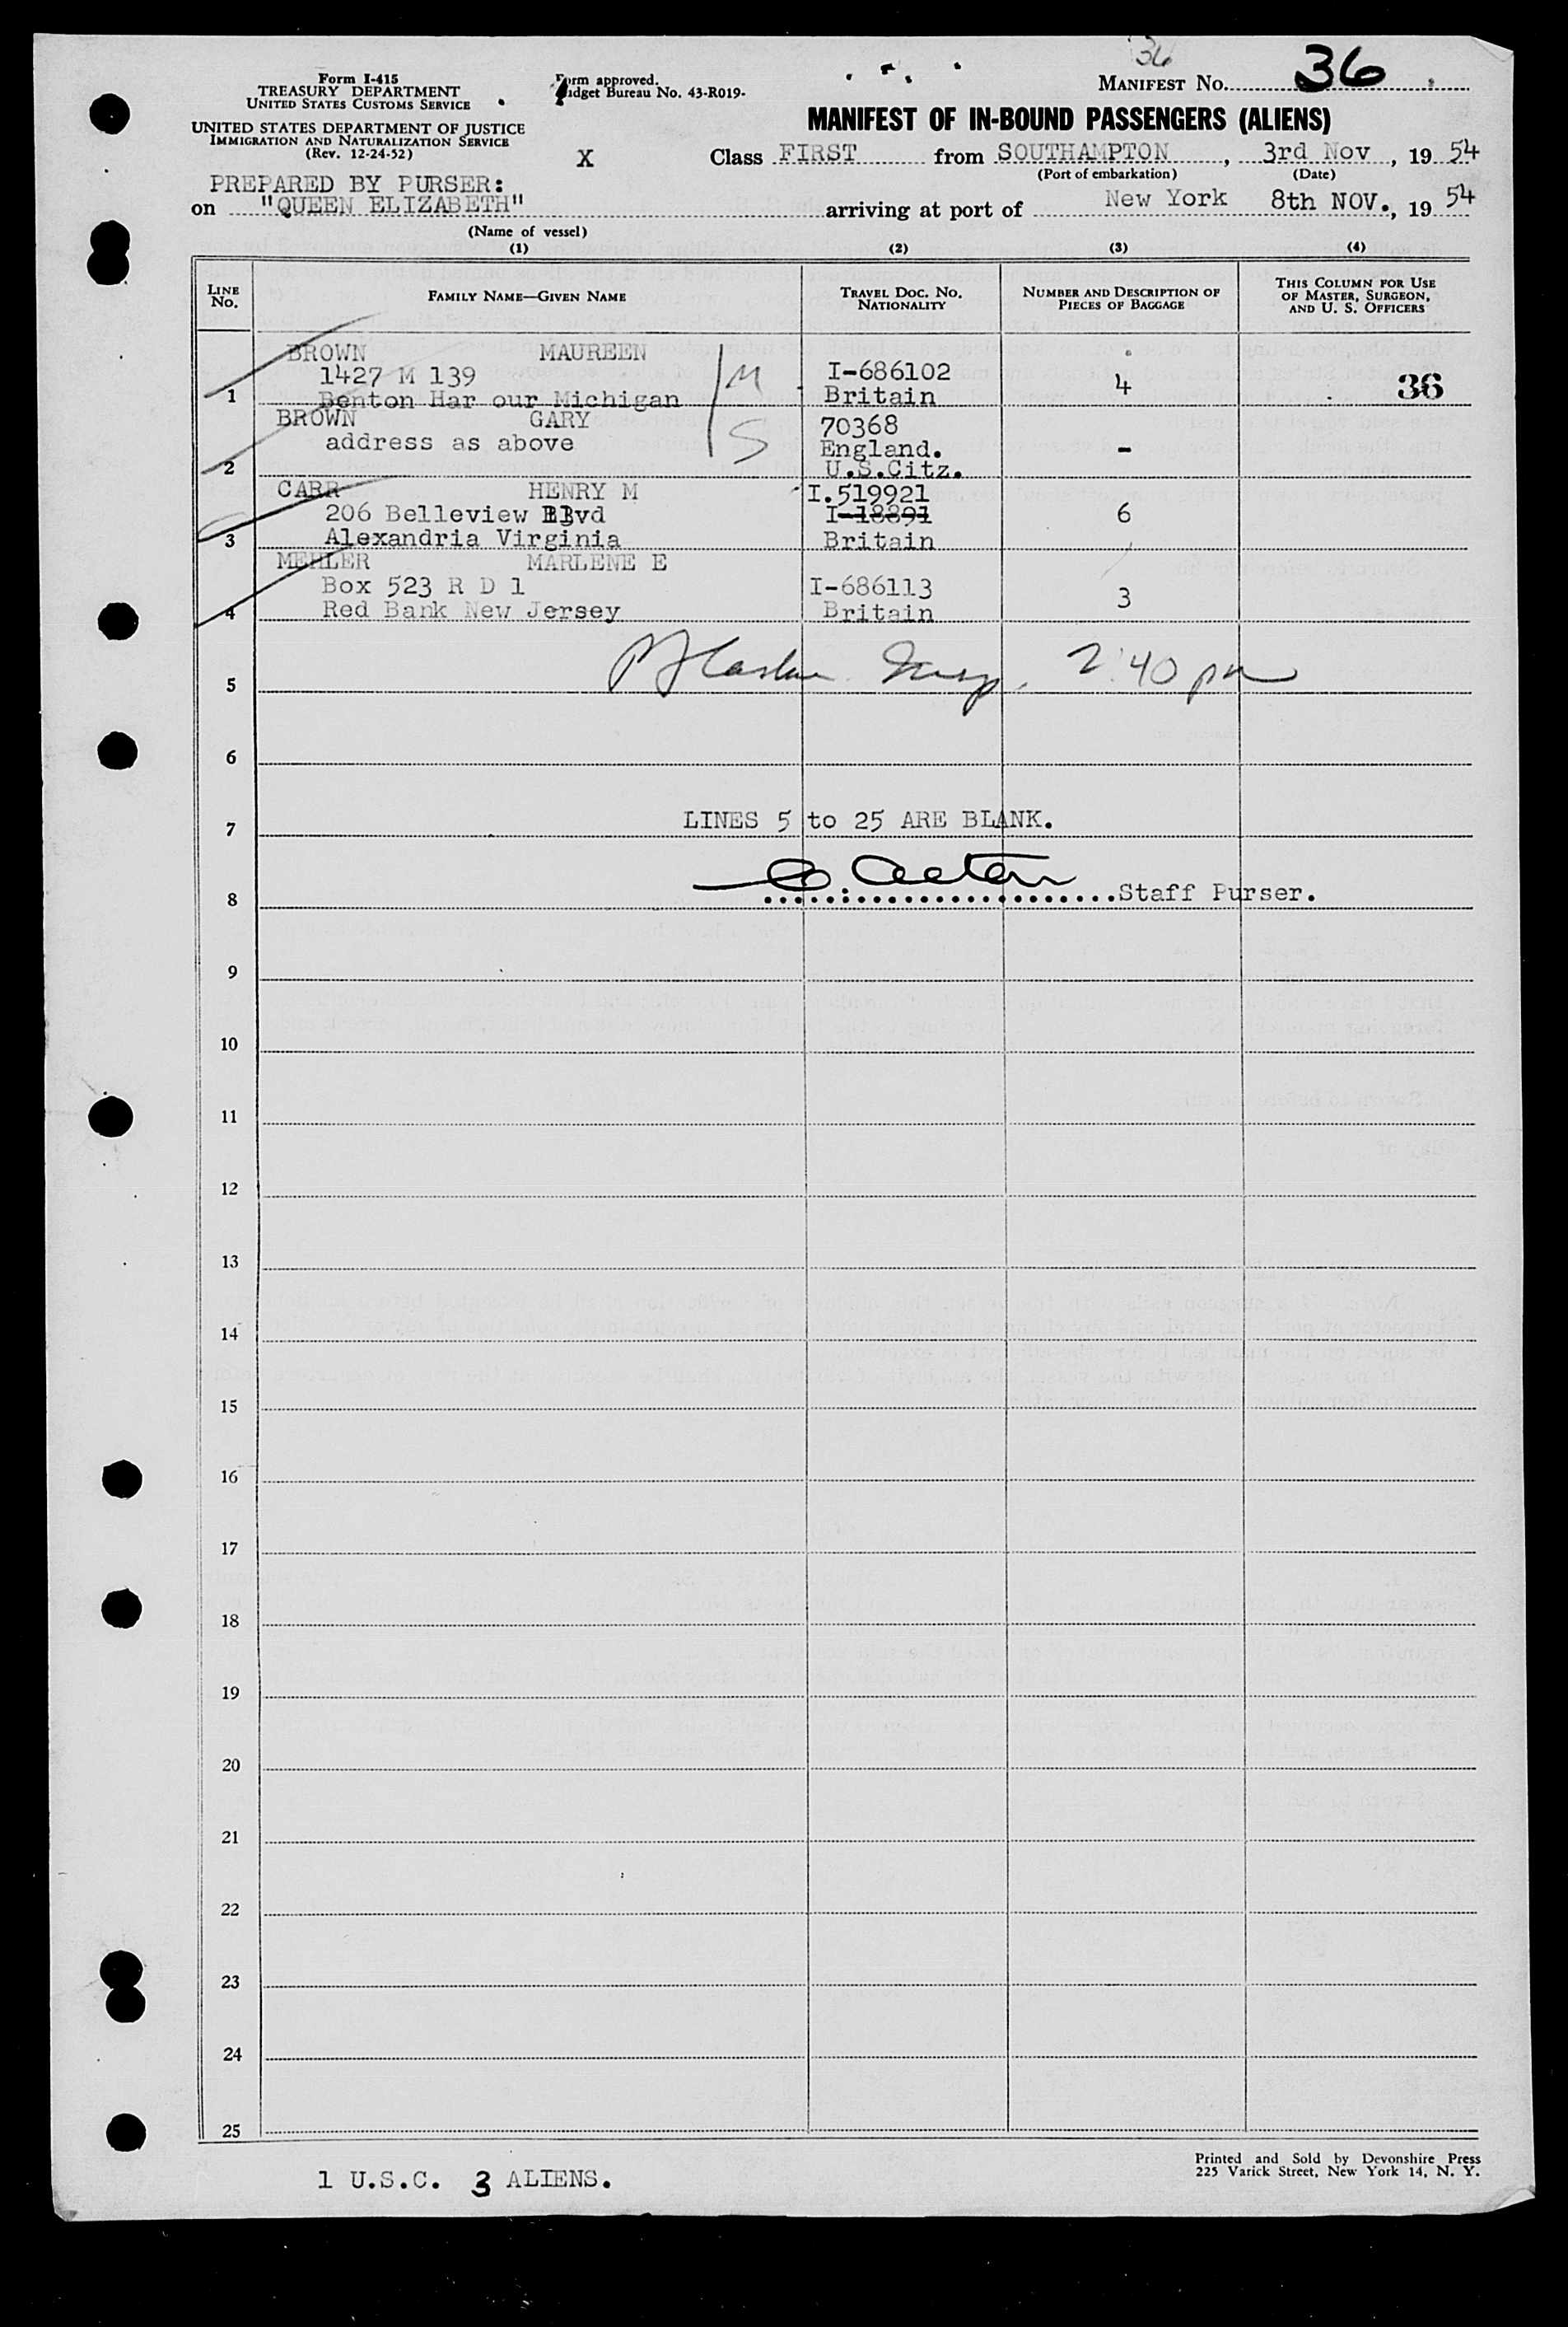 36
Form I-415
TREASURY DEPARTMENT
UNITED STATES CUSTOMS SERVICE
Form approved.
Budget Bureau No. 43-R019-
MANIFEST NO. 36
UNITED STATES DEPARTMENT OF JUSTICE
IMMIGRATION AND NATURALIZATION SERVICE
(Rev. 12-24-52)
MANIFEST OF IN-BOUND PASSENGERS (ALIENS)
X Class FIRST from SOUTHAMPTON, 3rd Nov, 19 54
(Port of embarkation) (Date)
PREPARED BY PURSER:
on "QUEEN ELIZABETH" arriving at port of New York 8th NOV., 19 54
(Name of vessel)
(1) (2) (3) (4)
LINE NO. FAMILY NAME—GIVEN NAME TRAVEL DOC. NO. NATIONALITY NUMBER AND DESCRIPTION OF PIECES OF BAGGAGE THIS COLUMN FOR USE OF MASTER, SURGEON, AND U. S. OFFICERS
BROWN MAUREEN
1427 M 139 M I-686102 4 36
1 Benton Har our Michigan Britain
BROWN GARY 70368
address as above S England. -
2 U.S.Citz.
CARR HENRY M I.519921
206 Belleview Blvd I-18891 6
3 Alexandria Virginia Britain
MEHLER MARLENE E
Box 523 R D 1 I-686113 3
4 Red Bank New Jersey Britain
2:40 pm
5
6
7 LINES 5 to 25 ARE BLANK.
8 Staff Purser.
9
10
11
12
13
14
15
16
17
18
19
20
21
22
23
24
25
Printed and Sold by Devonshire Press
225 Varick Street, New York 14, N. Y.
1 U.S.C. 3 ALIENS.